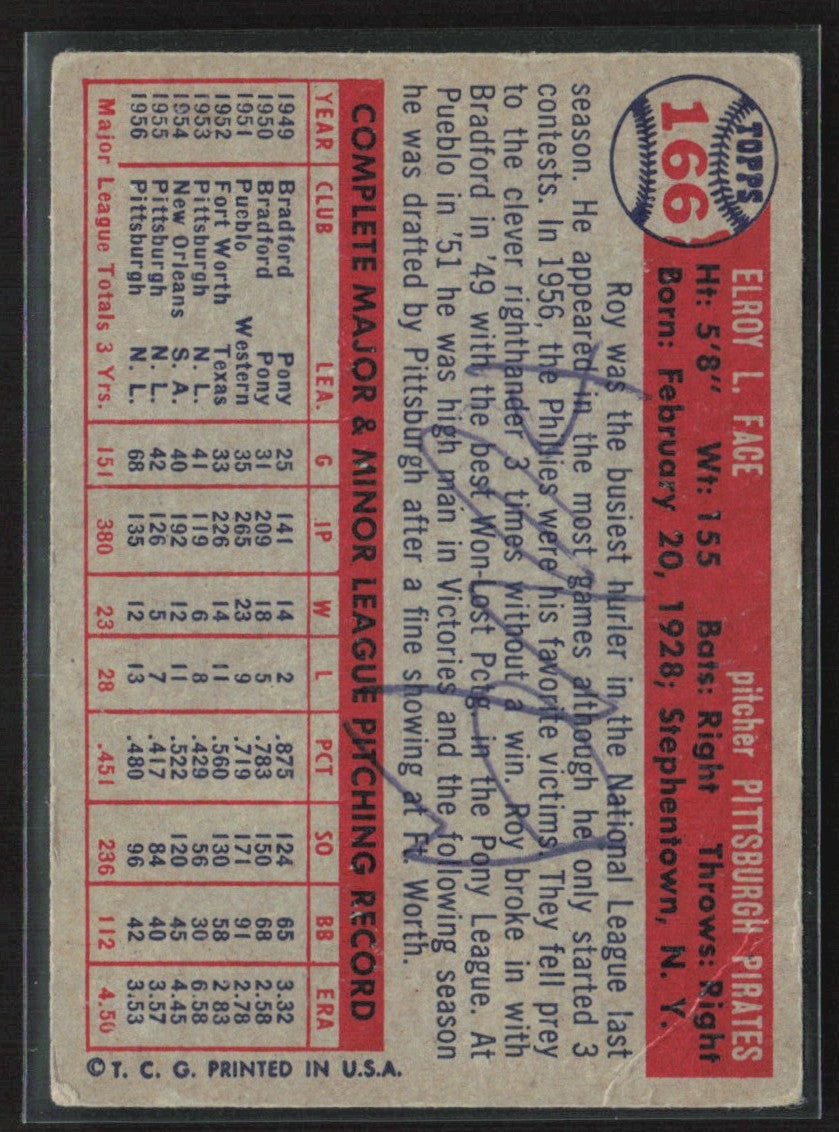 TOPPS
166
ELROY L. FACE pitcher PITTSBURGH PIRATES
Ht: 5'8" Wt: 155 Bats: Right Throws: Right
Born: February 20, 1928; Stephentown, N. Y.
Roy was the busiest hurler in the National League last
season. He appeared in the most games although he only started 3
contests. In 1956, the Phillies were his favorite victims. They fell prey
to the clever righthander 3 times without a win. Roy broke in with
Bradford in '49 with the best Won-Lost Pctg in the Pony League. At
Pueblo in '51 he was high man in Victories and the following season
he was drafted by Pittsburgh after a fine showing at Ft. Worth.
COMPLETE MAJOR & MINOR LEAGUE PITCHING RECORD
YEAR CLUB LEA. G IP W L PCT SO BB ERA
1949 Bradford Pony 25 141 14 2 .875 124 65 3.32
1950 Bradford Pony 31 209 18 5 .783 150 68 2.58
1951 Pueblo Western 35 265 23 9 .719 171 91 2.78
1952 Fort Worth Texas 33 226 14 11 .560 130 58 2.83
1953 Pittsburgh N. L. 41 119 6 8 .429 56 30 6.58
1954 New Orleans S. A. 40 192 12 11 .522 120 45 4.45
1955 Pittsburgh N. L. 42 126 5 7 .417 84 40 3.57
1956 Pittsburgh N. L. 68 135 12 13 .480 96 42 3.53
Major League Totals 3 Yrs. 151 380 23 28 .451 236 112 4.50
© T. C. G. PRINTED IN U.S.A.